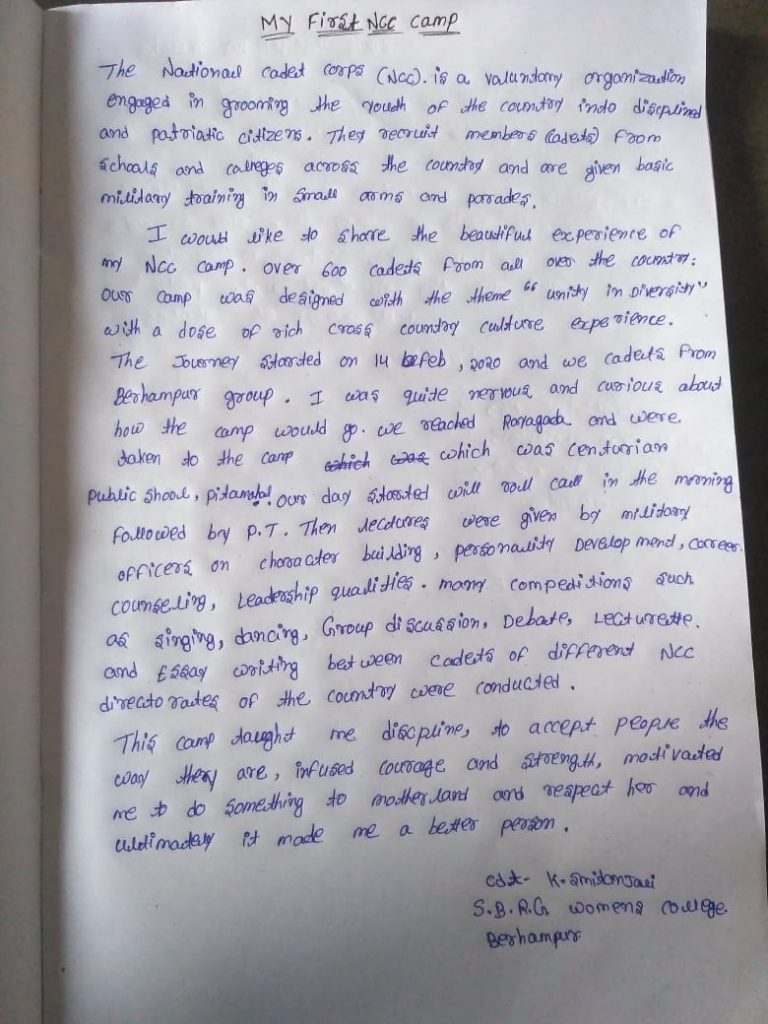 My First NCC Camp
The National cadet corps (NCC). is a valuntary organization
engaged in grooming the youth of the country into discplined
and patriatic citizens. They recruit members (cadets) From
schools and colleges across the country and are given basic
military training in small arms and parades.
I would like to share the beautiful experience of
my NCC camp. over 600 cadets from all over the country:
our camp was designed with the theme "unity in Diversity"
with a dose of rich cross country culture experience.
The Journey started on 14 Feb, 2020 and we cadets from
Berhampur group. I was quite nervous and curious about
how the camp would go. we reached Rayagada and were
taken to the camp which was which was centurian
public shool, Pitamahal. our day started will roll call in the morning
followed by P.T. Then lectures were given by military
officers on character building, personality Development, career
counseling, Leadership qualities. many competitions such
as singing, dancing, Group discussion, Debate, Lecturette.
and Essay writing between cadets of different NCC
directorates of the country were conducted.
This camp taught me discpline, to accept people the
way they are, infused courage and strength, motivated
me to do something to motherland and respect her and
ultimately it made me a better person.
cdt- K. Smitanjali
S.B.R.G womens college
Berhampur